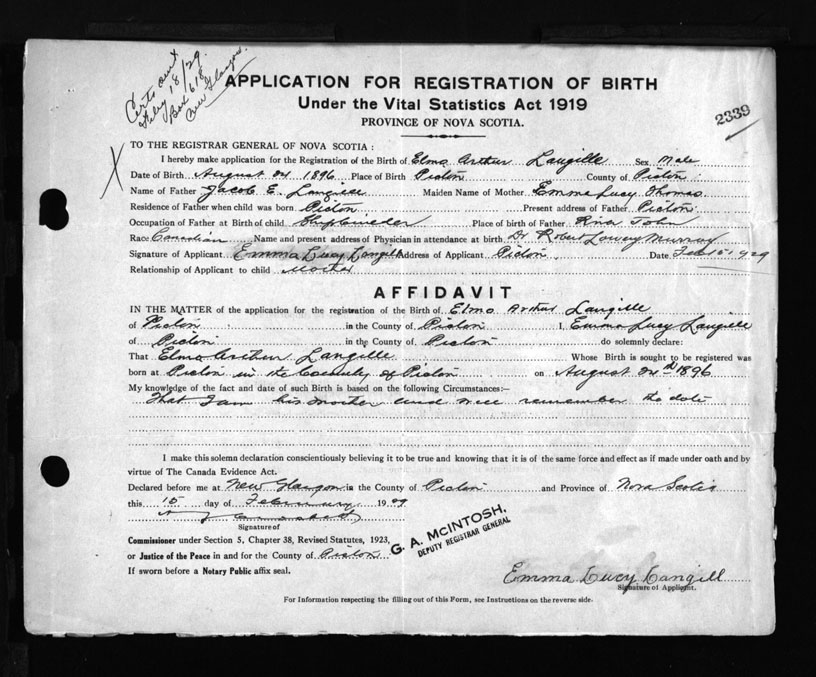 Certs sent
Feby 18/29.
Box 618
New Glasgow
APPLICATION FOR REGISTRATION OF BIRTH
Under the Vital Statistics Act 1919
PROVINCE OF NOVA SCOTIA.
2339
X
TO THE REGISTRAR GENERAL OF NOVA SCOTIA:
I hereby make application for the Registration of the Birth of Elmo Arthur Langille Sex Male
Date of Birth August 24 1896 Place of Birth Pictou County of Pictou
Name of Father Jacob E. Langille Maiden Name of Mother Emma Lucy Thomas
Residence of Father when child was born Pictou Present address of Father Pictou
Occupation of Father at Birth of child Place of birth of Father River John
Race Canadian Name and present address of Physician in attendance at birth Dr Robert Lowey Murray
Signature of Applicant Emma Lucy Langill Address of Applicant Pictou Date Feb 15 1929
Relationship of Applicant to child Mother
AFFIDAVIT
IN THE MATTER of the application for the registration of the Birth of Elmo Arthur Langille
of Pictou in the County of Pictou I, Emma Lucy Langille
of Pictou in the County of Pictou do solemnly declare:
That Elmo Arthur Langille Whose Birth is sought to be registered was
born at Pictou in the County of Pictou on August 24th 1896
My knowledge of the fact and date of such Birth is based on the following Circumstances:—
That I am his mother and well remember the date
I make this solemn declaration conscientiously believing it to be true and knowing that it is of the same force and effect as if made under oath and by
virtue of The Canada Evidence Act.
Declared before me at New Glasgow in the County of Pictou and Province of Nova Scotia
this 15 day of February 1929
Signature of
Commissioner under Section 5, Chapter 38, Revised Statutes, 1923,
or Justice of the Peace in and for the County of Pictou
G. A. McINTOSH,
DEPUTY REGISTRAR GENERAL
If sworn before a Notary Public affix seal.
Emma Lucy Langill
Signature of Applicant.
For Information respecting the filling out of this Form, see Instructions on the reverse side.